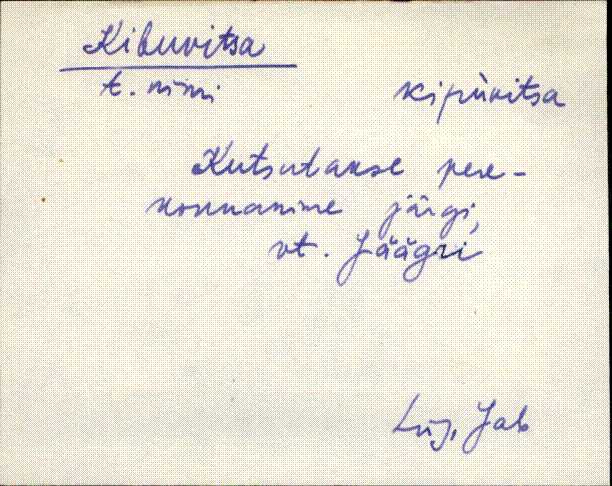 Kibuvitsa
t. nimi kipùvitsa
Kutsutakse pere-
konnanime järgi,
vt. Jäägri
Lüg, Jab